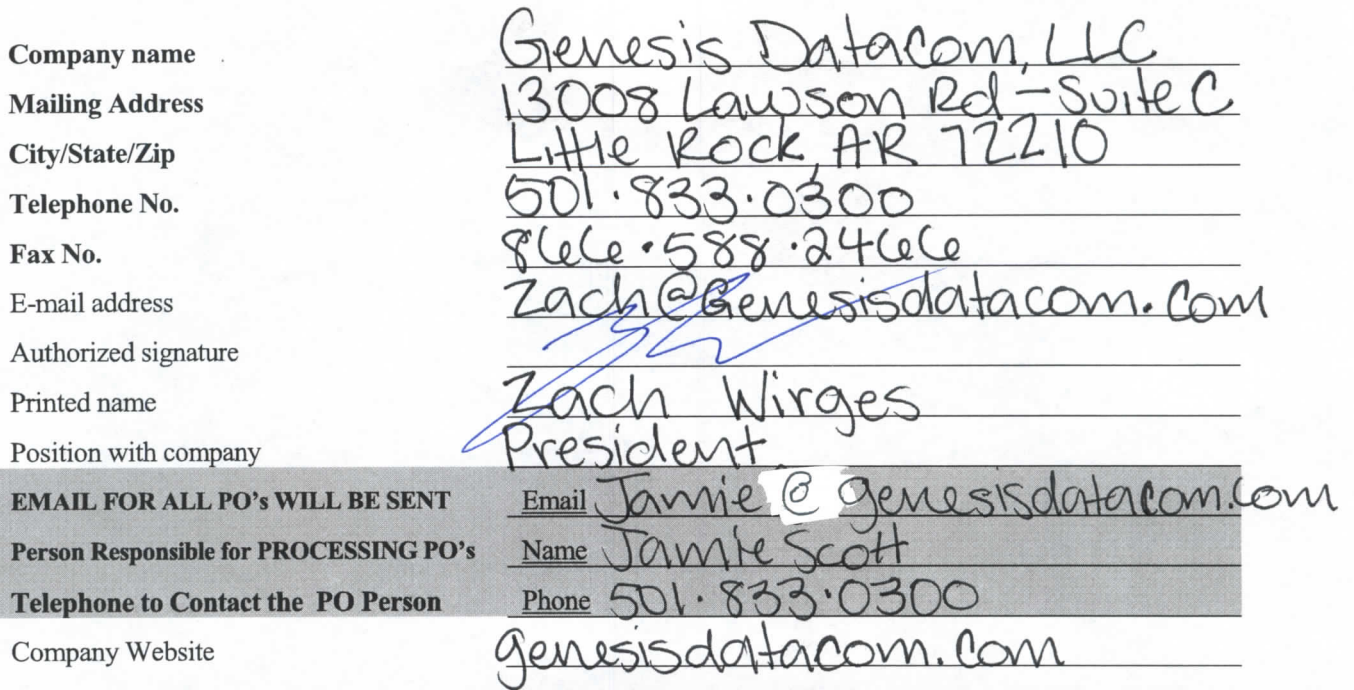 Company name Genesis Datacom, LLC
Mailing Address 13008 Lawson Rd - Suite C
City/State/Zip Little Rock, AR 72210
Telephone No. 501·833·0300
Fax No. 866·588·2466
E-mail address Zach@Genesisdatacom.com
Authorized signature
Printed name Zach Wirges
Position with company President
EMAIL FOR ALL PO's WILL BE SENT Email Jamie@genesisdatacom.com
Person Responsible for PROCESSING PO's Name Jamie Scott
Telephone to Contact the PO Person Phone 501·833·0300
Company Website genesisdatacom.com